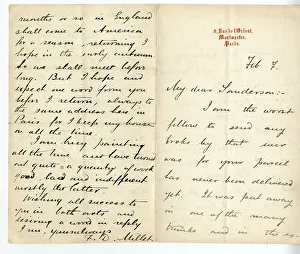 8, Rue de l'Orient,
Montmartre,
Paris.
Feb 7.
My dear Sanderson:-
I am the worst
fellow to send any
books by that ever
was for your parcel
has never been delivered
yet. It was put away
in one of the many
trunks and in the
months or so in England
shall come to America
for a season, returning I
hope in the early autumn.
So we shall meet before
long. But I hope and
expect one word from you
before I return, always to
the same address here in
Paris for I keep my house
on all the time.
I am busy painting
all the time and have turned
out quite a quantity of work
good bad and indifferent
mostly the latter.
Wishing all success to
you in both arts and
desiring a word in reply
I am, yours always
F. D. Millet